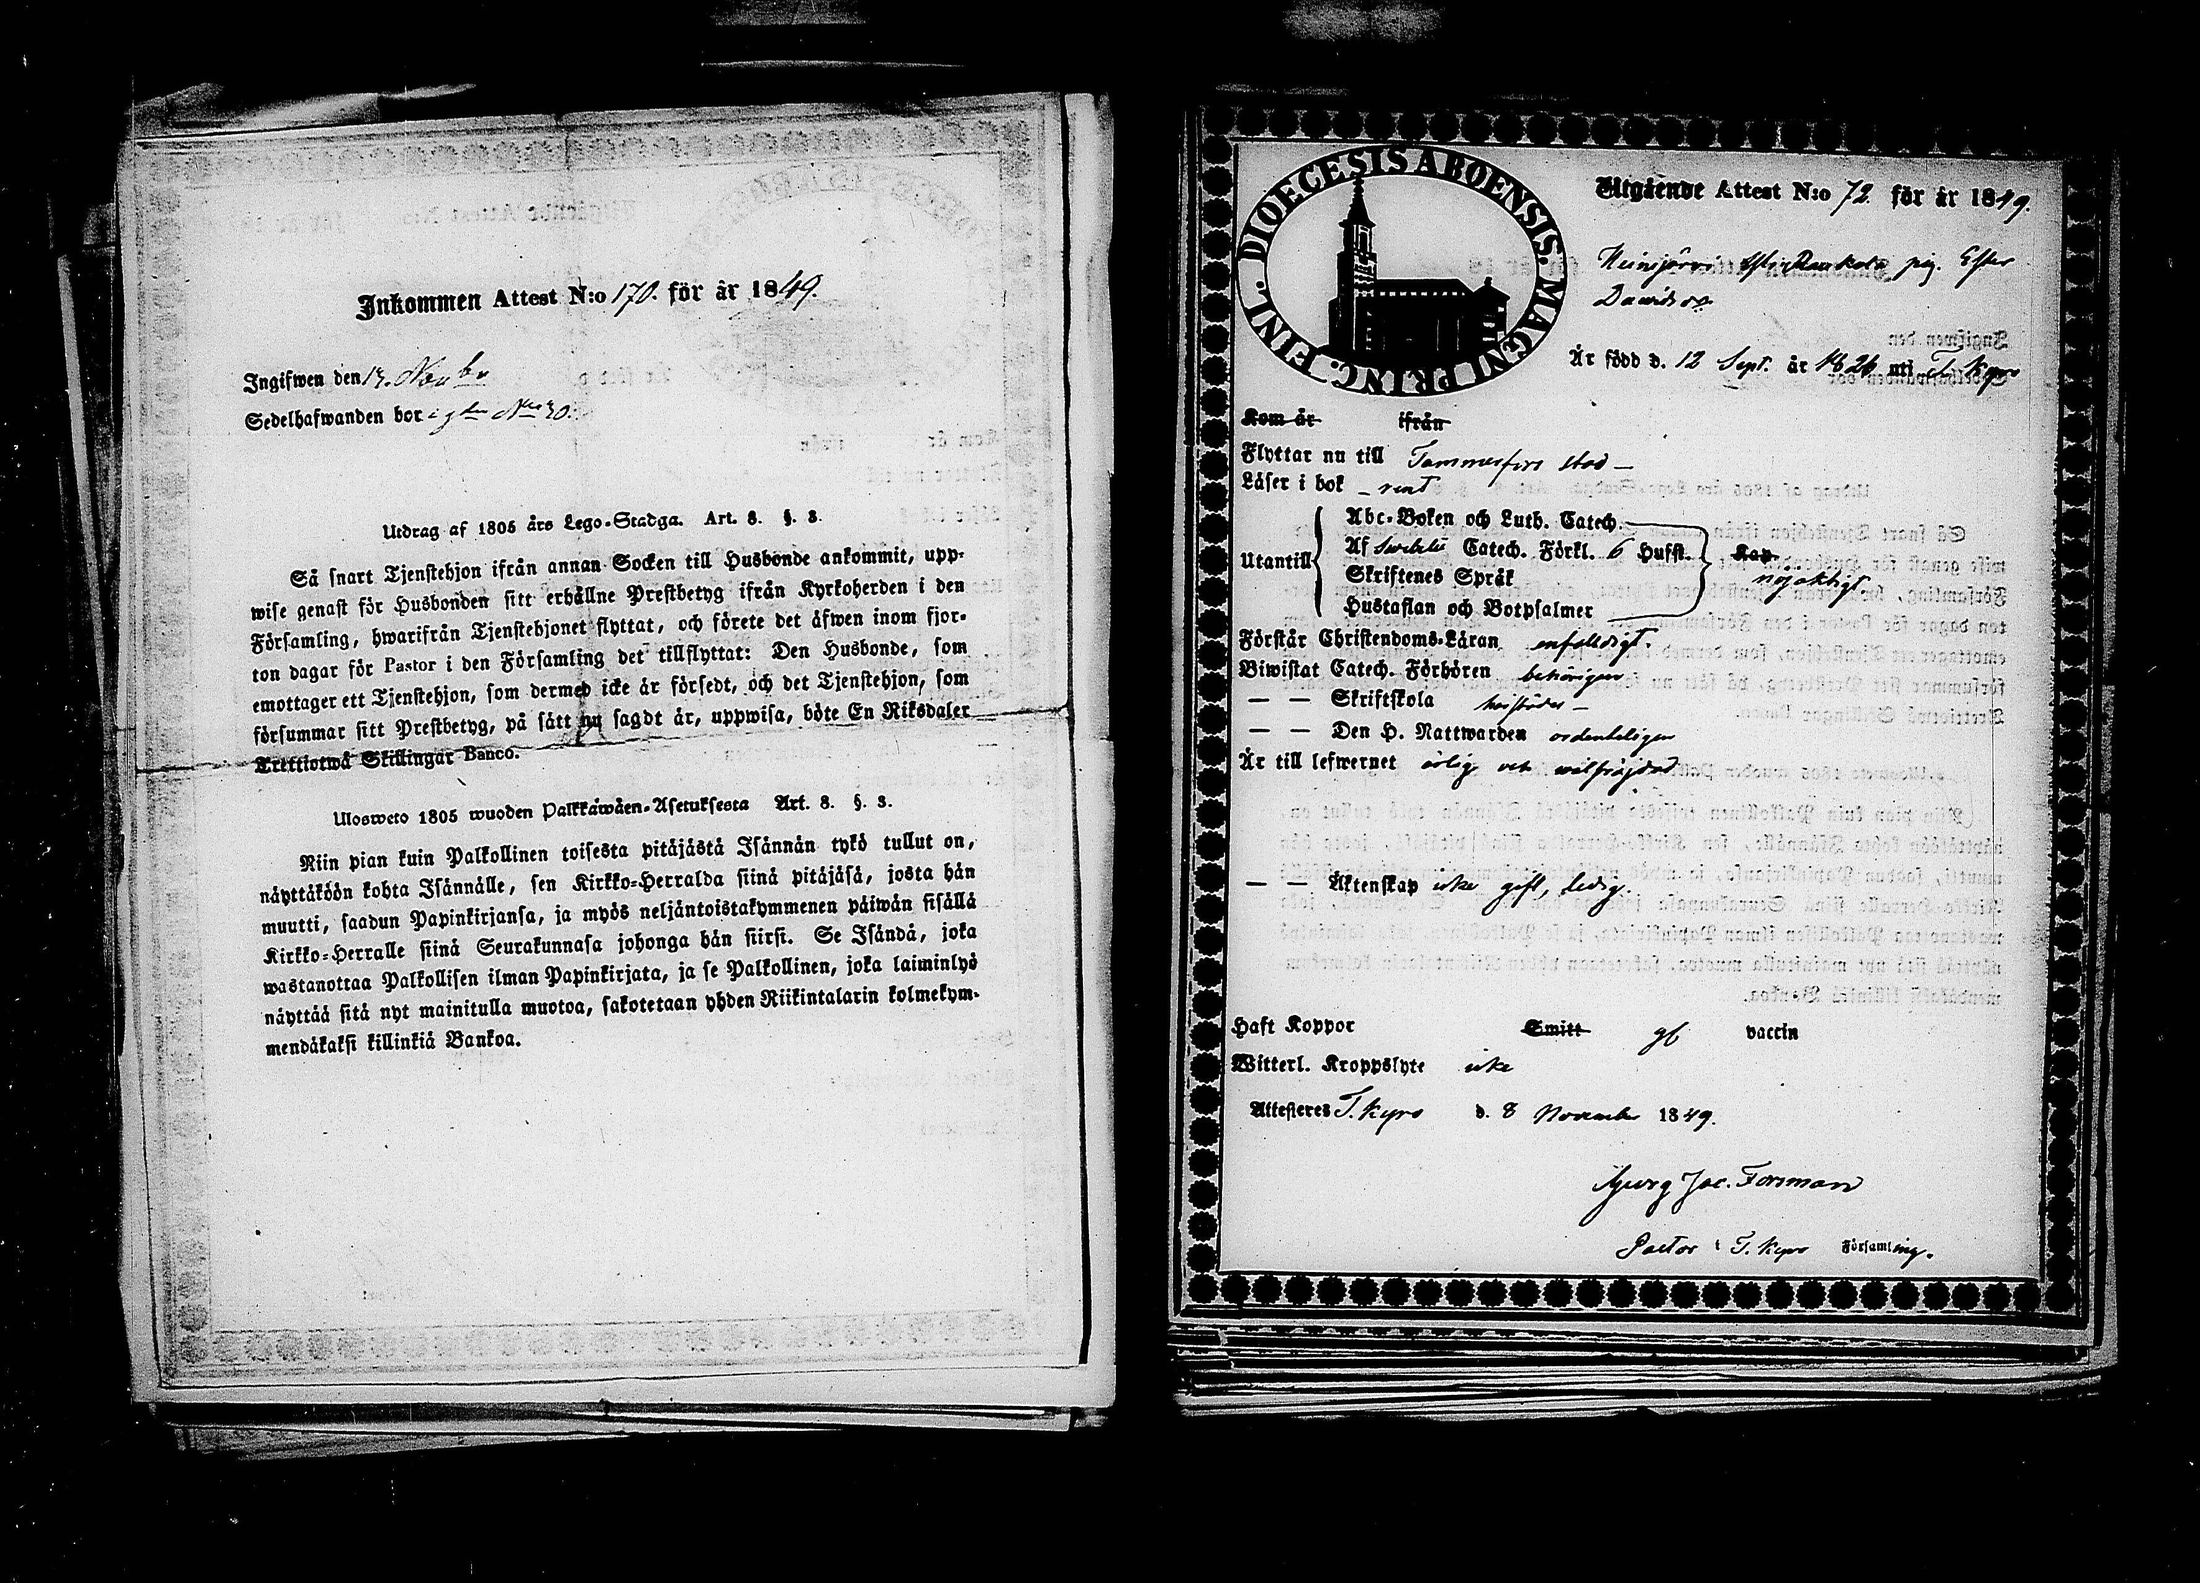 Inkommen Attest N:o 170. för år 1849.
Ingifwen den 13. Novbr
Sedelhafwanden bor i gden N:o 30.
Utdrag af 1805 års Lego-Stadga. Art. 8. §. 3.
Så snart Tjenstehjon ifrån annan Socken till Husbonde ankommit, upp-
wise genast för Husbonden sitt erhållne Prestbetyg ifrån Kyrkoherden i den
Församling, hwarifrån Tjenstehjonet flyttat, och förete det äfwen inom fjor-
ton dagar för Pastor i den Församling det tillflyttat: Den Husbonde, som
emottager ett Tjenstehjon, som dermed icke är försedt, och det Tjenstehjon, som
försummar sitt Prestbetyg, på sätt nu sagdt är, uppwisa, böte En Riksdaler
Trettiotwå Skillingar Banco.
Ulosweto 1805 wuoden Palkkäwäen-Asetuksesta Art. 8. §. 3.
Niin pian kuin Palkollinen toisesta pitäjästä Isännän tykö tullut on,
näyttäköön kohta Isännälle, sen Kirkko-Herralda siinä pitäjäsä, josta hän
muutti, saadun Papinkirjansa, ja myös neljäntoistakymmenen päiwän sisällä
Kirkko-Herralle siinä Seurakunnasa johonga hän siirsi. Se Isändä, joka
wastanottaa Palkollisen ilman Papinkirjata, ja se Palkollinen, joka laiminlyö
näyttää sitä nyt mainitulla muotoa, sakotetaan yhden Riikintalarin kolmekym-
mendäkaksi killinkiä Bankoa.
DIOECESIS ABOENSIS. MAGNI PRINC. FINL.
Utgående Attest N:o 72 för år 1849.
Heinijärvi pig. Ester
Davidsdr
Är född d. 12 Sept. år 1826 uti T. Kyro
Kom år ifrån
Flyttar nu till Tammerfors stad —
Läser i bok – rent
Utantill
Abc-Boken och Luth. Catech.
Af Svebelii Catech. Förkl. 6 Hufst. Kap.
Skriftenes Språk nöjaktigt
Hustaflan och Botpsalmer
Förstår Christendoms-Läran enfaldigt.
Biwistat Catech. Förhören behörigen
— — Skriftskola
— — Den H. Nattwarden ordenteligen
Är till lefwernet ärlig och wälfräjdad
— — Äktenskap icke gift, ledig.
Haft Koppor Smitt gb vaccin
Witterl. Kroppslyte icke
Attesteres T. Kyro d. 8 November 1849.
Georg Jac. Forsman
Pastor i T. Kyro Församling.